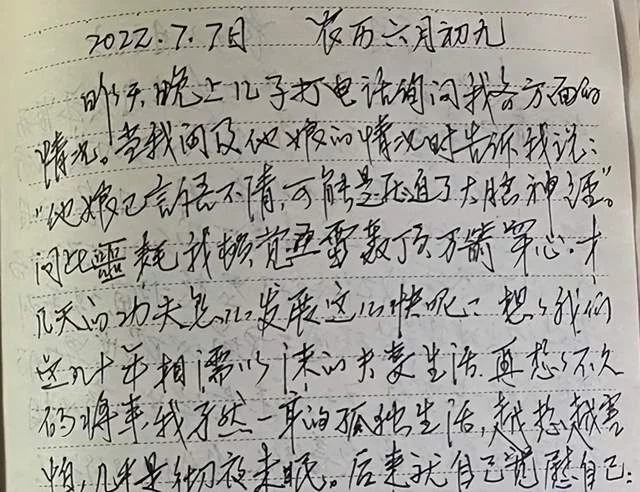 2022.7.7日 农历六月初九
昨天晚上儿子打电话询问我各方面的
情况。当我问及他娘的情况时告诉我说：
“他娘已言语不清，可能是压迫了大脑神经”。
闻此噩耗我顿觉五雷轰顶万箭穿心．才
几天的功夫怎么发展这么快呢？想想我们
这几十年相濡以沫的夫妻生活．再想想不久
的将来，我孑然一身的孤独生活，越想越害
怕，几乎是彻夜未眠。后来就自己宽慰自己：